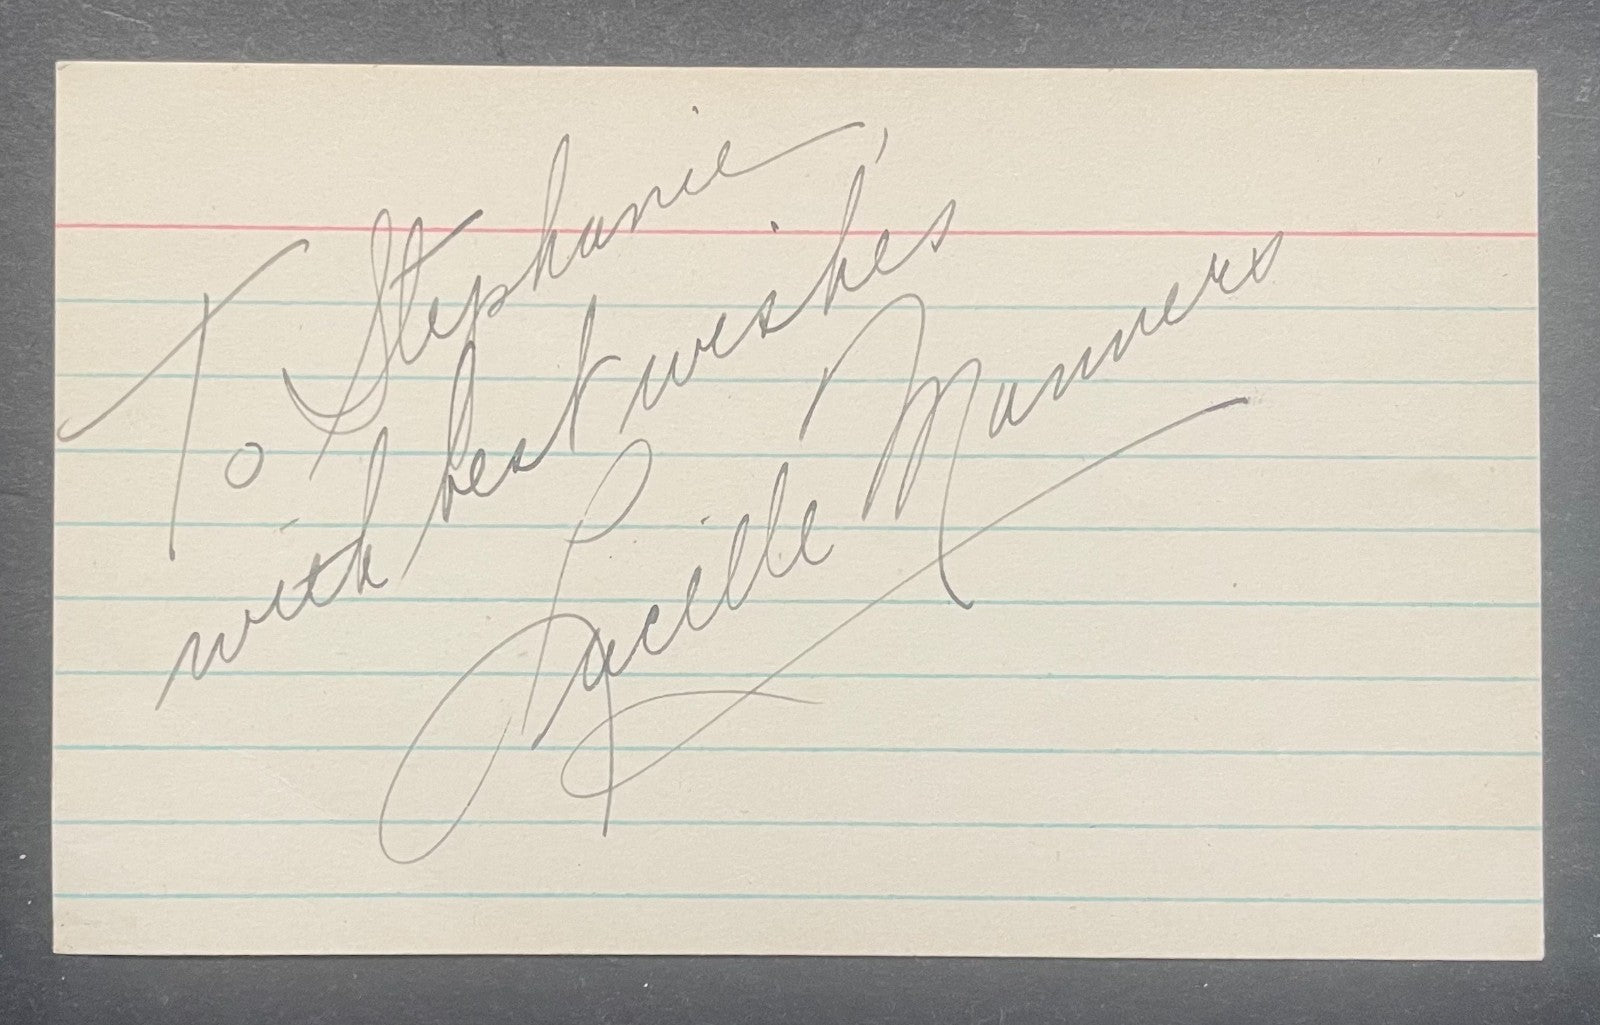 To Stephanie,
with best wishes,
Lucille Manners